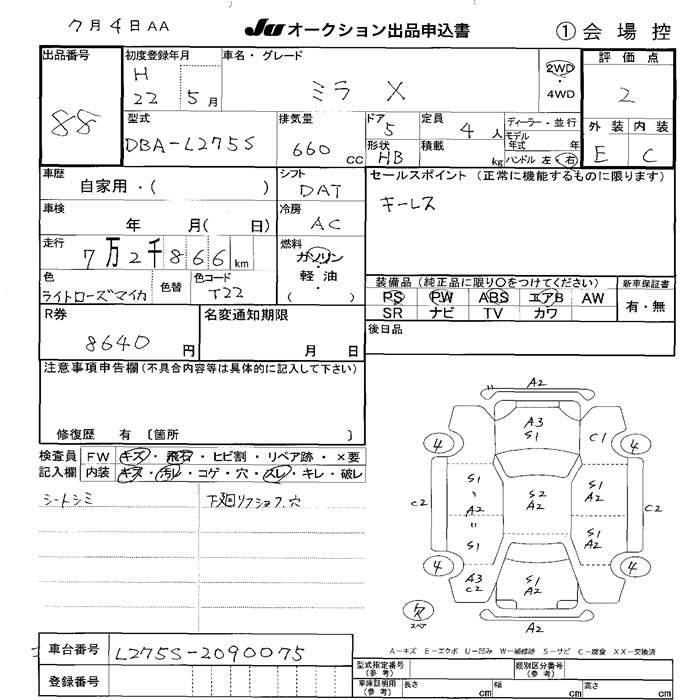 7月4日AA
JU オークション出品申込書 ①会場控
出品番号 初度登録年月 車名・グレード 評価点
88 H 22 5月 ミラ X 2WD・4WD 2
型式 排気量 ドア 定員 ディーラー・並行 外装 内装
DBA-L275S 660 CC 5 4人 モデル年式 年 E C
形状 積載
HB kg ハンドル 左 右
車歴 シフト セールスポイント (正常に機能するものに限ります)
自家用・( ) DAT キーレス
車検 冷房
年 月( 日) AC
走行 燃料
7万2千866km ガソリン・軽油
( )
色 色替 色コード 装備品 (純正品に限り○をつけてください) 新車保証書
ライトローズマイカ T22 PS PW ABS エアB AW 有・無
SR ナビ TV カワ
R券 名変通知期限 後日品
8640円 月 日
注意事項申告欄 (不具合内容等は具体的に記入して下さい)
修復歴 有 〔箇所 〕
検査員記入欄 FW キズ・飛石・ヒビ割・リペア跡・×要
内装 キズ・汚レ・コゲ・穴・スレ・キレ・破レ
シートシミ 下廻りフショク、穴
A2
A3
S1
C1
4 4
C2 S1 、 A2 S2 A2 S1 A2 C2
〃
S1 S1 A2
4 4
A3 C2 S1 A2
欠
スペア
A2
A-キズ E-エクボ U-凹み W-補修跡 S-サビ C-腐食 XX-交換済
車台番号 L275S-2090075
登録番号
型式指定番号 (参考) 類別区分番号 (参考)
車庫証明用 (参考) 長さ cm 幅 cm 高さ cm